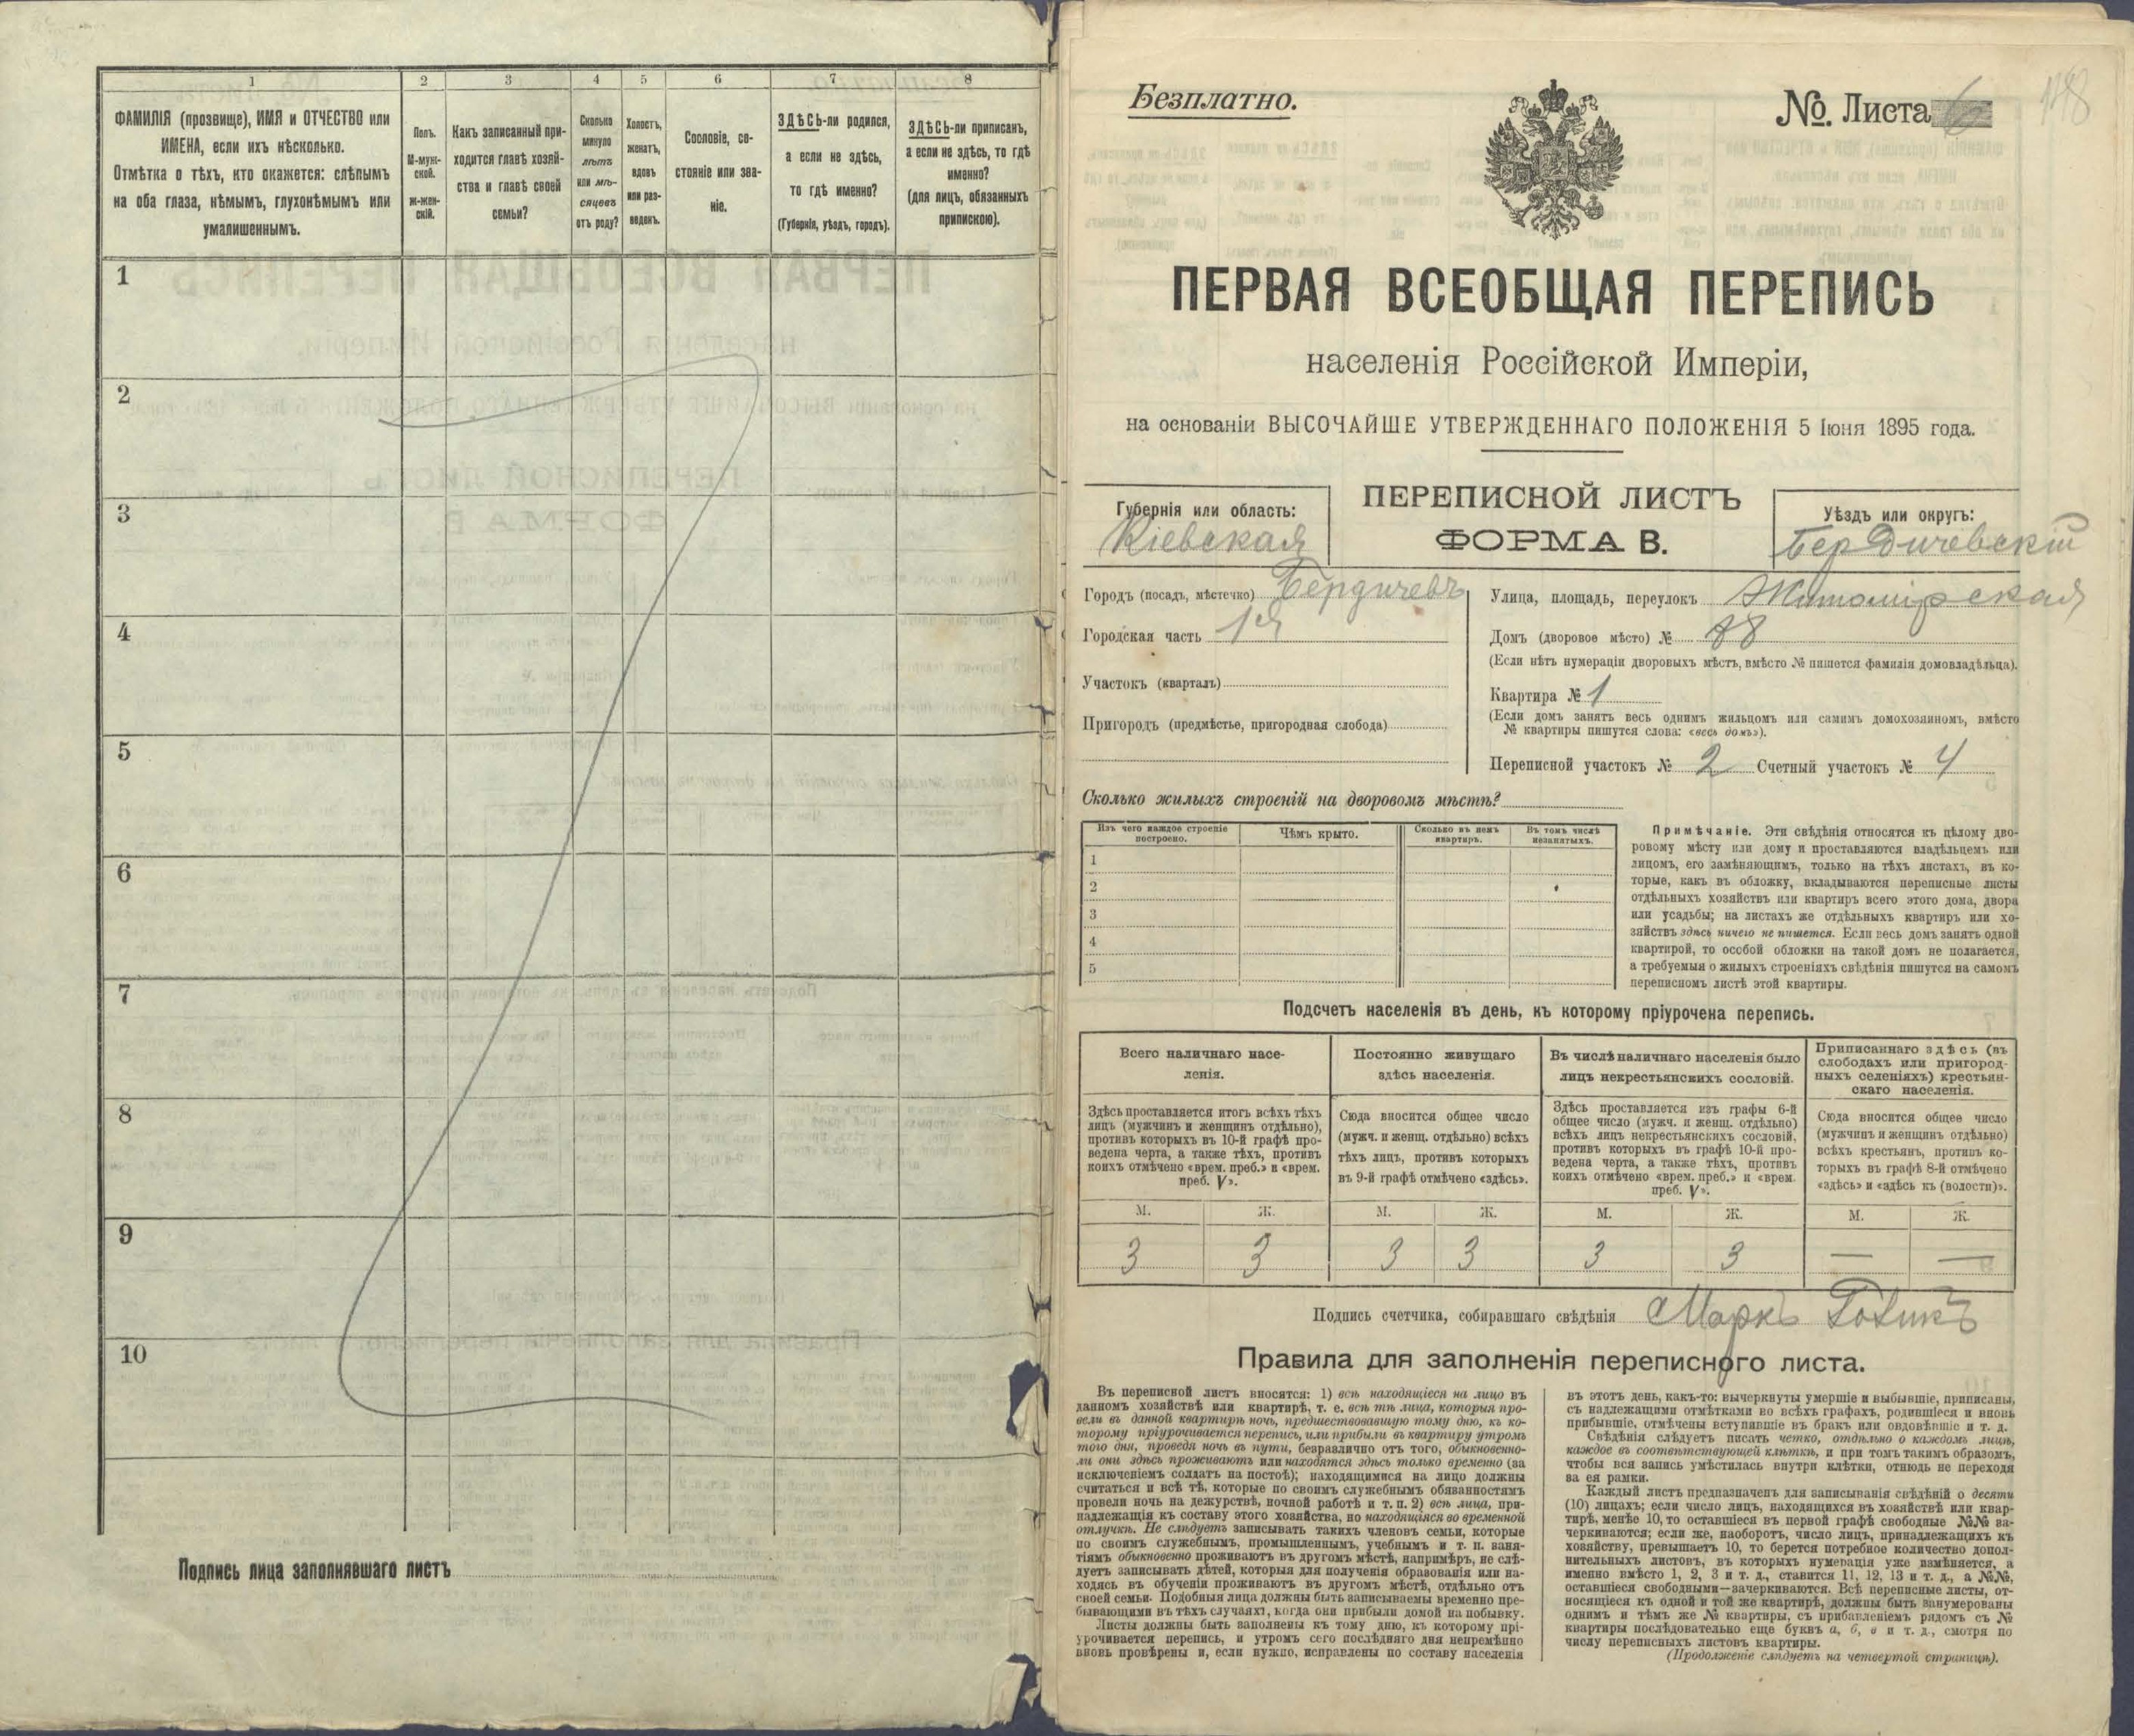 1
2
3
4
5
6
7
8
ФАМИЛІЯ (прозвище), ИМЯ и ОТЧЕСТВО или
ИМЕНА, если ихъ нѣсколько.
Отмѣтка о тѣхъ, кто окажется: слѣпымъ
на оба глаза, нѣмымъ, глухонѣмымъ или
умалишеннымъ.
Полъ.
М-муж-
ской.
Ж-жен-
скій.
Какъ записанный при-
ходится главѣ хозяй-
ства и главѣ своей
семьи?
Сколько
минуло
лѣтъ
или мѣ-
сяцевъ
отъ роду?
Холостъ,
женатъ,
вдовъ
или раз-
веденъ.
Сословіе, со-
стояніе или зва-
ніе.
ЗДѢСЬ-ли родился,
а если не здѣсь,
то гдѣ именно?
(Губернія, уѣздъ, городъ).
ЗДѢСЬ-ли приписанъ,
а если не здѣсь, то гдѣ
именно?
(для лицъ, обязанныхъ
припискою).
1
2
3
4
5
6
7
8
9
10
Подпись лица заполнявшаго листъ
Безплатно.
№. Листа 6
148
ПЕРВАЯ ВСЕОБЩАЯ ПЕРЕПИСЬ
населенія Россійской Имперіи,
на основаніи ВЫСОЧАЙШЕ УТВЕРЖДЕННАГО ПОЛОЖЕНІЯ 5 Іюня 1895 года.
Губернія или область:
Кіевская
ПЕРЕПИСНОЙ ЛИСТЪ
ФОРМА В.
Уѣздъ или округъ:
Бердичевскій
Городъ (посадъ, мѣстечко) Бердичевъ
Городская часть 1я
Участокъ (кварталъ)
Пригородъ (предмѣстье, пригородная слобода)
Улица, площадь, переулокъ Житомірская
Домъ (дворовое мѣсто) № 88
(Если нѣтъ нумераціи дворовыхъ мѣстъ, вмѣсто № пишется фамилія домовладѣльца).
Квартира № 1
(Если домъ занятъ весь однимъ жильцомъ или самимъ домохозяиномъ, вмѣсто
№ квартиры пишутся слова: «весь домъ»).
Переписной участокъ № 2 Счетный участокъ № 4
Сколько жилыхъ строеній на дворовомъ мѣстѣ?
Изъ чего каждое строеніе
построено.
Чѣмъ крыто.
Сколько въ немъ
квартиръ.
Въ томъ числѣ
незанятыхъ.
1
2
3
4
5
Примѣчаніе. Эти свѣдѣнія относятся къ цѣлому дво-
ровому мѣсту или дому и проставляются владѣльцемъ или
лицомъ, его замѣняющимъ, только на тѣхъ листахъ, въ ко-
торые, какъ въ обложку, вкладываются переписные листы
отдѣльныхъ хозяйствъ или квартиръ всего этого дома, двора
или усадьбы; на листахъ же отдѣльныхъ квартиръ или хо-
зяйствъ здѣсь ничего не пишется. Если весь домъ занятъ одной
квартирой, то особой обложки на такой домъ не полагается,
а требуемыя о жилыхъ строеніяхъ свѣдѣнія пишутся на самомъ
переписномъ листѣ этой квартиры.
Подсчетъ населенія въ день, къ которому пріурочена перепись.
Всего наличнаго насе-
ленія.
Постоянно живущаго
здѣсь населенія.
Въ числѣ наличнаго населенія было
лицъ некрестьянскихъ сословій.
Приписаннаго здѣсь (въ
слободахъ или пригород-
ныхъ селеніяхъ) крестьян-
скаго населенія.
Здѣсь проставляется итогъ всѣхъ тѣхъ
лицъ (мужчинъ и женщинъ отдѣльно),
противъ которыхъ въ 10-й графѣ про-
ведена черта, а также тѣхъ, противъ
коихъ отмѣчено «врем. преб.» и «врем.
преб. V».
Сюда вносится общее число
(мужч. и женщ. отдѣльно) всѣхъ
тѣхъ лицъ, противъ которыхъ
въ 9-й графѣ отмѣчено «здѣсь».
Здѣсь проставляется изъ графы 6-й
общее число (мужч. и женщ. отдѣльно)
всѣхъ лицъ некрестьянскихъ сословій,
противъ которыхъ въ графѣ 10-й про-
ведена черта, а также тѣхъ, противъ
коихъ отмѣчено «врем. преб.» и «врем.
преб. V».
Сюда вносится общее число
(мужчинъ и женщинъ отдѣльно)
всѣхъ крестьянъ, противъ ко-
торыхъ въ графѣ 8-й отмѣчено
«здѣсь» и «здѣсь къ (волости)».
М. Ж. М. Ж. М. Ж. М. Ж.
3 3 3 3 3 3 — —
Подпись счетчика, собиравшаго свѣдѣнія Маркъ
Правила для заполненія переписного листа.
Въ переписной листъ вносятся: 1) всѣ находящіеся на лицо въ
данномъ хозяйствѣ или квартирѣ, т. е. всѣ тѣ лица, которыя про-
вели въ данной квартирѣ ночь, предшествовавшую тому дню, къ ко-
торому пріурочивается перепись, или прибыли въ квартиру утромъ
того дня, проведя ночь въ пути, безразлично отъ того, обыкновенно-
ли они здѣсь проживаютъ или находятся здѣсь только временно (за
исключеніемъ солдатъ на постоѣ); находящимися на лицо должны
считаться и всѣ тѣ, которые по своимъ служебнымъ обязанностямъ
провели ночь на дежурствѣ, ночной работѣ и т. п. 2) всѣ лица, при-
надлежащія къ составу этого хозяйства, но находящіяся во временной
отлучкѣ. Не слѣдуетъ записывать такихъ членовъ семьи, которые
по своимъ служебнымъ, промышленнымъ, учебнымъ и т. п. заня-
тіямъ обыкновенно проживаютъ въ другомъ мѣстѣ, напримѣръ, не слѣ-
дуетъ записывать дѣтей, которыя для полученія образованія или на-
ходясь въ обученіи проживаютъ въ другомъ мѣстѣ, отдѣльно отъ
своей семьи. Подобныя лица должны быть записываемы временно пре-
бывающими въ тѣхъ случаяхъ, когда они прибыли домой на побывку.
Листы должны быть заполнены къ тому дню, къ которому прі-
урочивается перепись, и утромъ сего послѣдняго дня непремѣнно
вновь провѣрены и, если нужно, исправлены по составу населенія
въ этотъ день, какъ-то: вычеркнуты умершіе и выбывшіе, приписаны,
съ надлежащими отмѣтками во всѣхъ графахъ, родившіеся и вновь
прибывшіе, отмѣчены вступившіе въ бракъ или овдовѣвшіе и т. д.
Свѣдѣнія слѣдуетъ писать четко, отдѣльно о каждомъ лицѣ,
каждое въ соотвѣтствующей клѣткѣ, и при томъ такимъ образомъ,
чтобы вся запись умѣстилась внутри клѣтки, отнюдь не переходя
за ея рамки.
Каждый листъ предназначенъ для записыванія свѣдѣній о десяти
(10) лицахъ; если число лицъ, находящихся въ хозяйствѣ или квар-
тирѣ, менѣе 10, то оставшіеся въ первой графѣ свободные №№ за-
черкиваются; если же, наоборотъ, число лицъ, принадлежащихъ къ
хозяйству, превышаетъ 10, то берется потребное количество допол-
нительныхъ листовъ, въ которыхъ нумерація уже измѣняется, а
именно вмѣсто 1, 2, 3 и т. д., ставится 11, 12, 13 и т. д., а №№,
оставшіеся свободными—зачеркиваются. Всѣ переписные листы, от-
носящіеся къ одной и той же квартирѣ, должны быть занумерованы
однимъ и тѣмъ же № квартиры, съ прибавленіемъ рядомъ съ №
квартиры послѣдовательно еще буквъ а, б, в и т. д., смотря по
числу переписныхъ листовъ квартиры.
(Продолженіе слѣдуетъ на четвертой страницѣ).